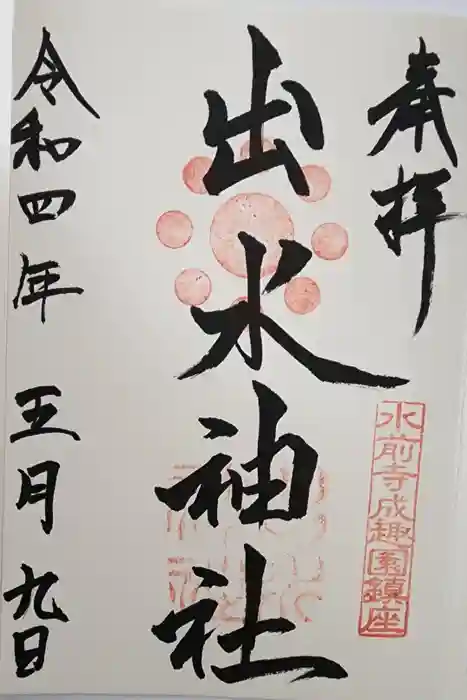 奉拝
水前寺成趣園鎮座
出水神社
令和四年五月九日